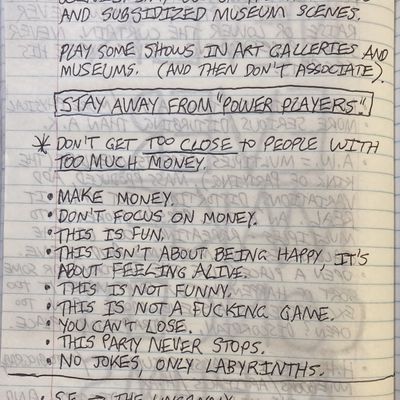 AND SUBSIDIZED MUSEUM SCENES.
PLAY SOME SHOWS IN ART GALLERIES AND
MUSEUMS. (AND THEN DON'T ASSOCIATE).
STAY AWAY FROM "POWER PLAYERS".
* DON'T GET TOO CLOSE TO PEOPLE WITH
TOO MUCH MONEY.
• MAKE MONEY.
• DON'T FOCUS ON MONEY.
• THIS IS FUN.
• THIS ISN'T ABOUT BEING HAPPY IT'S
ABOUT FEELING ALIVE.
• THIS IS NOT FUNNY.
• THIS IS NOT A FUCKING GAME.
• YOU CAN'T LOSE.
• THIS PARTY NEVER STOPS.
• NO JOKES, ONLY LABYRINTHS.
THE UNCANNY